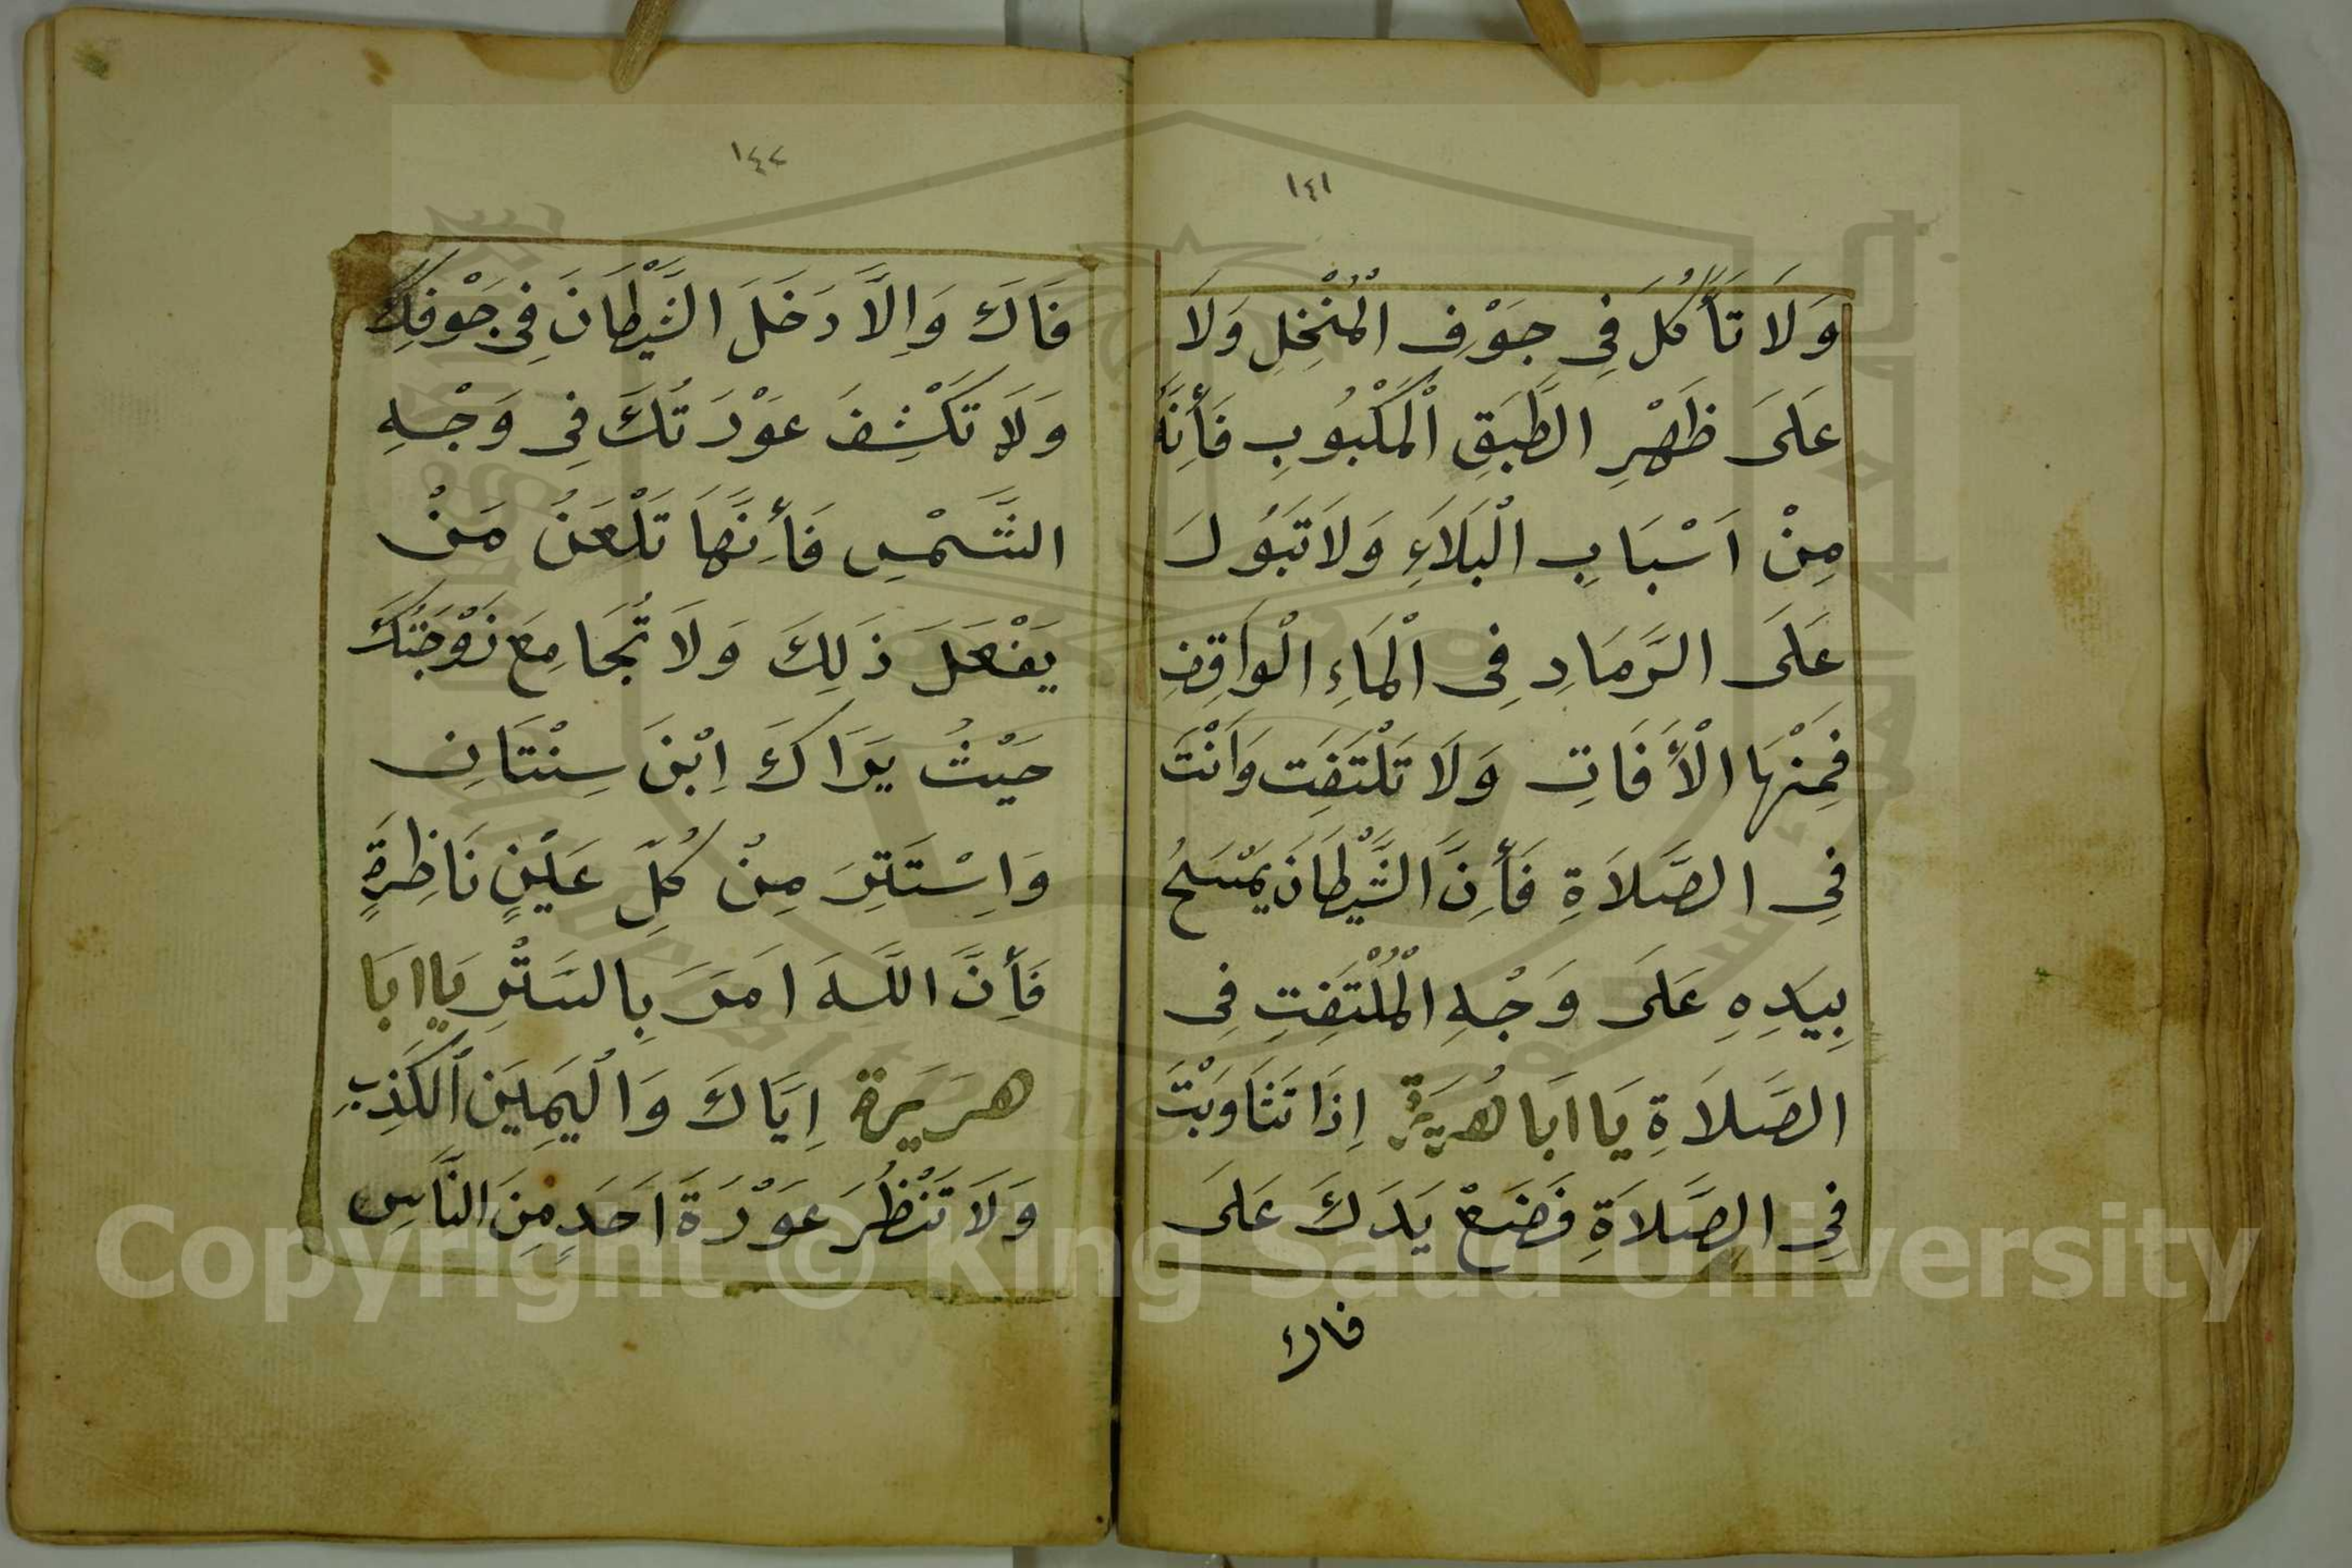 ١٤١
وَلَا تَأْكُلَ فِي جَوْفِ الْمُنْخِلِ وَلَا
عَلَىَ ظَهْرِ الطَّبَقِ الْمَكْبُوبِ فَأِنَّهُ
مِنْ اَسْبَابِ الْبَلَاءِ وَلَا تَبُولَ
عَلَىَ الرَّمَادِ فِى الْمَاءِ الْوَاقِفِ
فَمِنْهَا الْأَفَاتِ وَلَا تَلْتَفِت وَاَنْتَ
فِي الصَّلَاةِ فَأِنَّ الشَّيْطَانَ يَمْسَحُ
بِيَدِهِ عَلَىَ وَجْهِ الْمُلْتَفِتِ فِى
الصَّلَاةِ يَا اَبَا هُرَيْرَةَ اِذَا تَثَاوَبْتَ
فِي الصَّلَاةِ فَضَعْ يَدَكَ عَلَىَ
فاك
١٤٢
فَاكَ وَاِلَّا دَخَلَ الشَّيْطَانَ فِى جَوْفِكَ
وَلَا تَكْشِفَ عَوْرَتُكَ فِى وَجْهِ
الشَّمْسِ فَأِنَّهَا تَلْعَنُ مَنْ
يَفْعَلَ ذَلِكَ وَلَا تُجَامِعَ زَوْجَتُكَ
حَيْثُ يَرَاكَ اِبْنَ سِنْتَانِ
وَاِسْتَتِرَ مِنْ كُلِّ عَيْنٍ نَاظِرَةٍ
فَأِنَّ اللَّهَ اَمَرَ بِالسَتْرِ يَا اَبَا
هرَيَرة اِيَّاكَ وَالْيَمِيَن الْكَذِبِ
وَلَا تَنْظُرَ عَوْرَةَ اَحَدٍ مِنَ النَّاسِ
Copyright © King Saud University